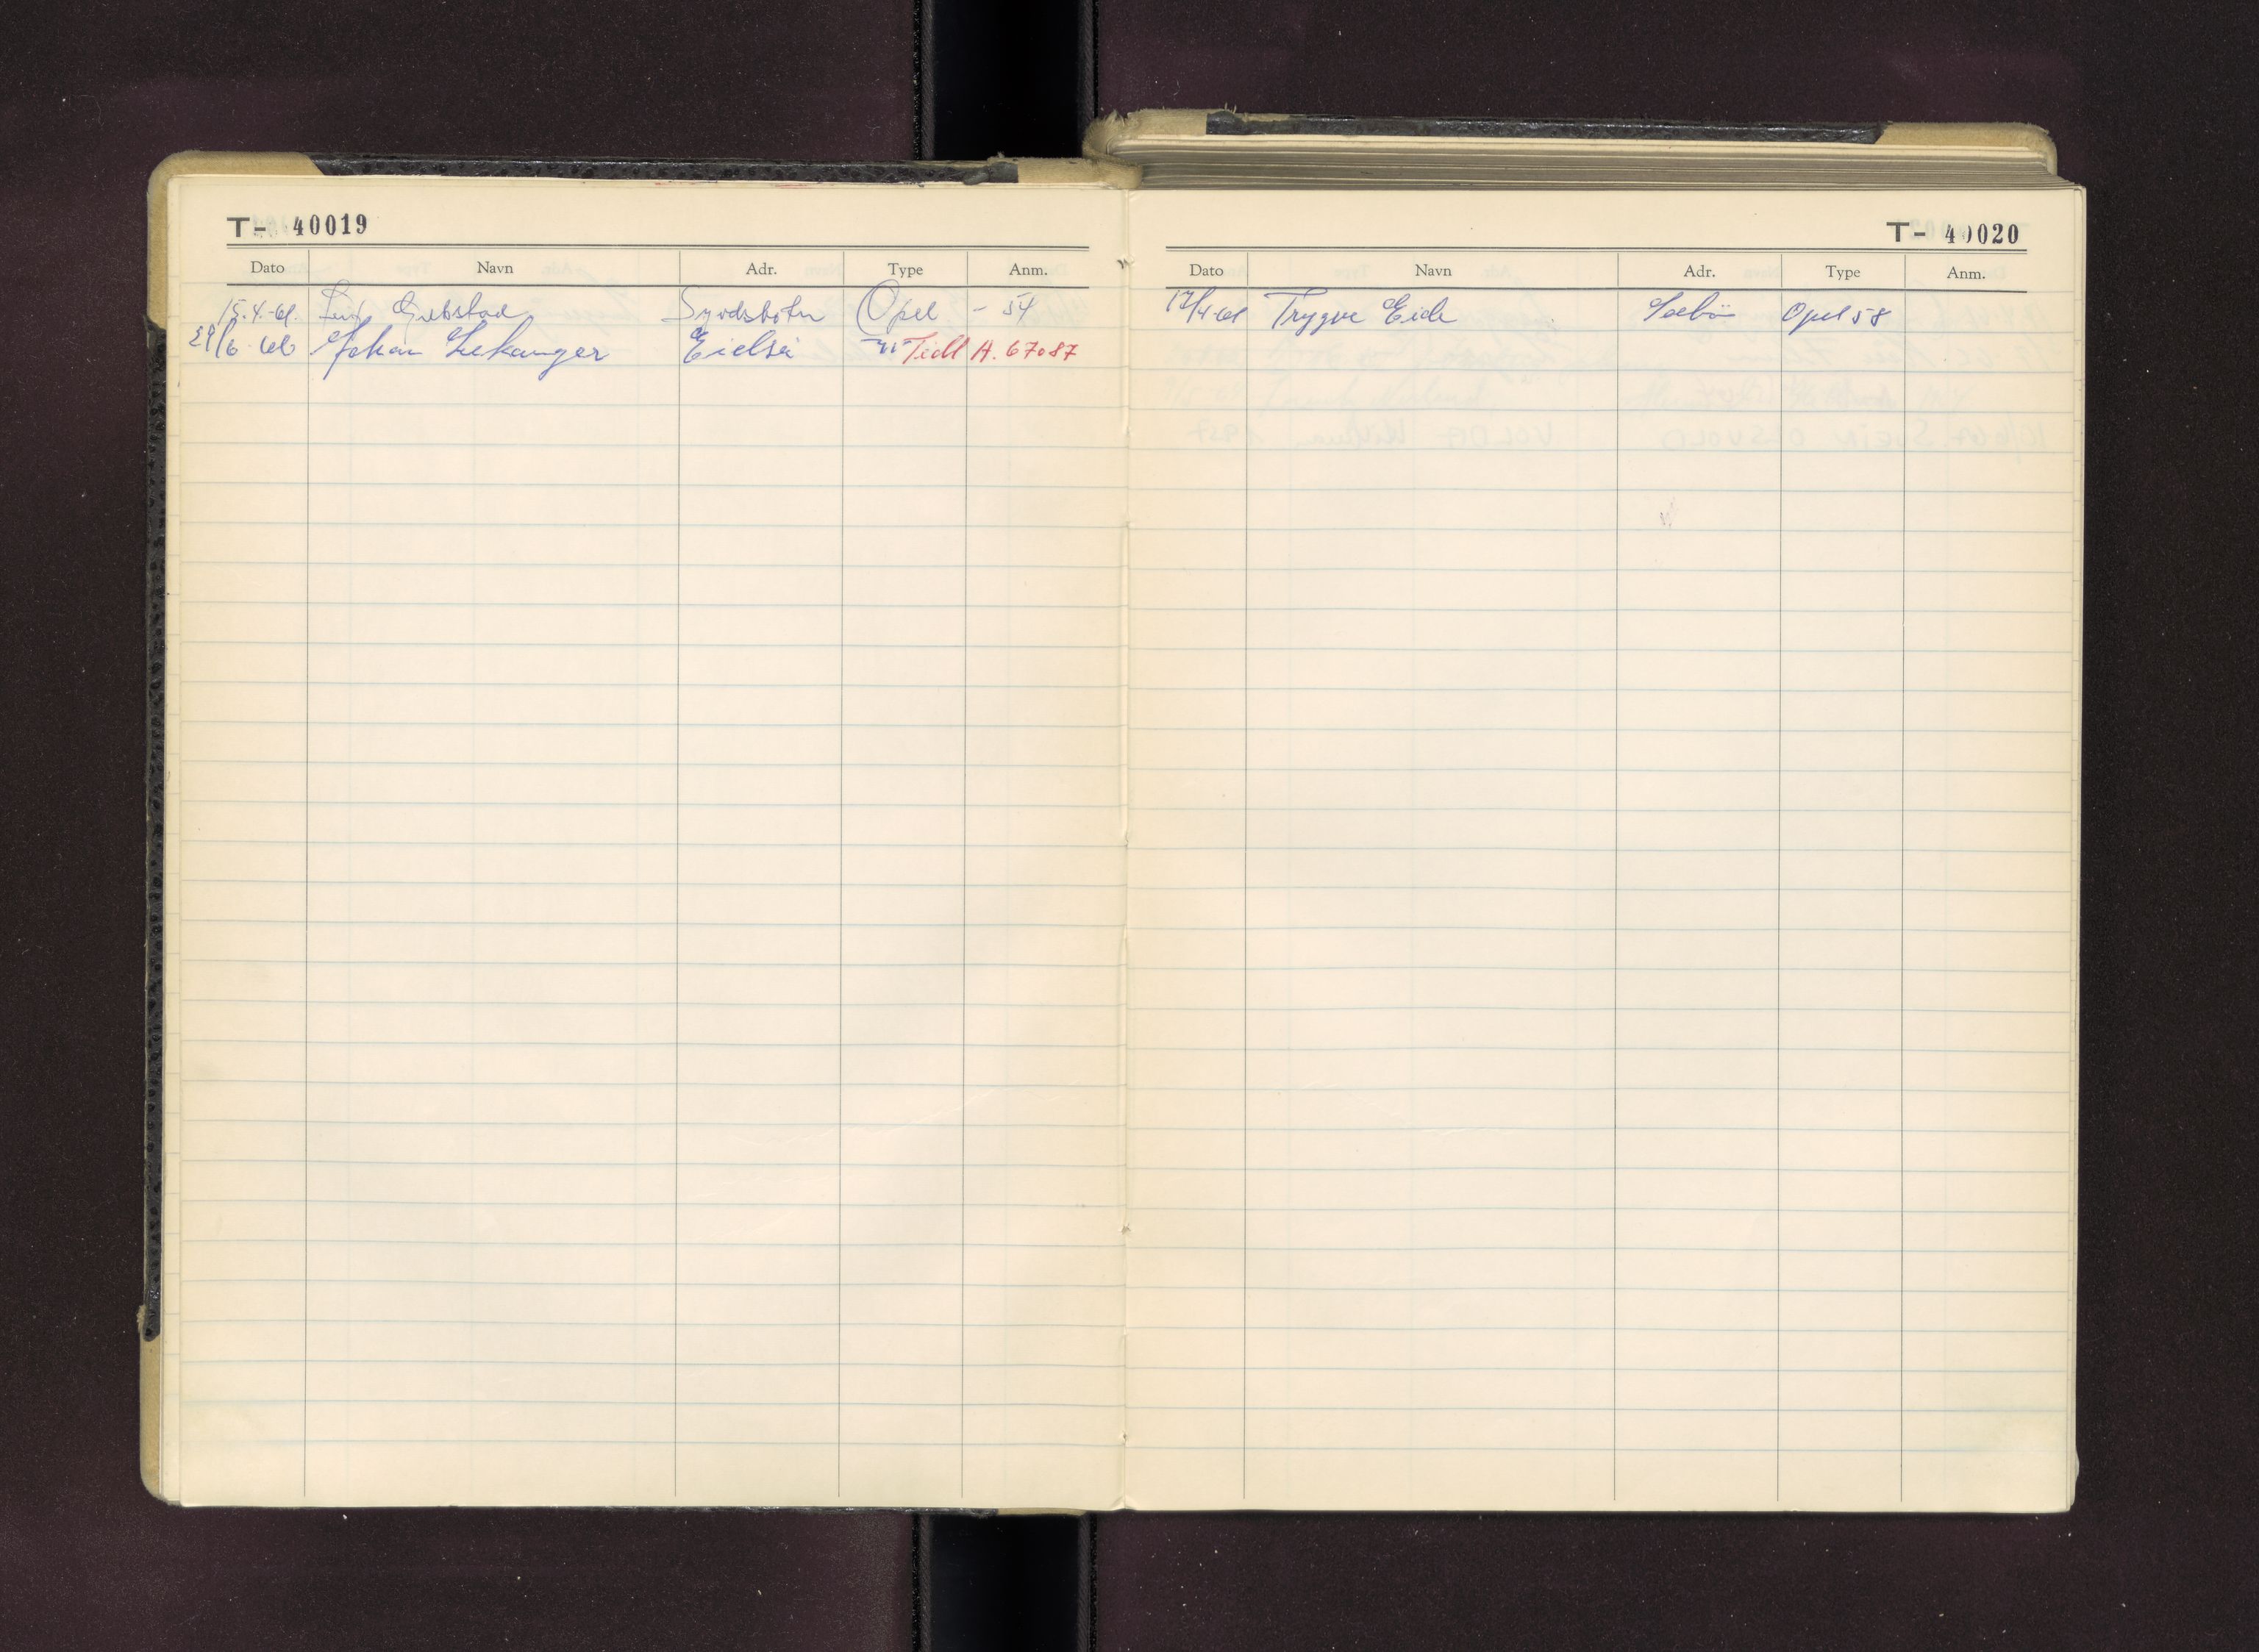 T- 40019
Dato Navn Adr. Type Anm.
15.4.-61. Opel - 54
29/6-66 Johan Leikanger Eidså -"- Tidl H. 67087
T- 40020
Dato Navn Adr. Type Anm.
17/4-61 Trygve Eide Sæbö Opel 58